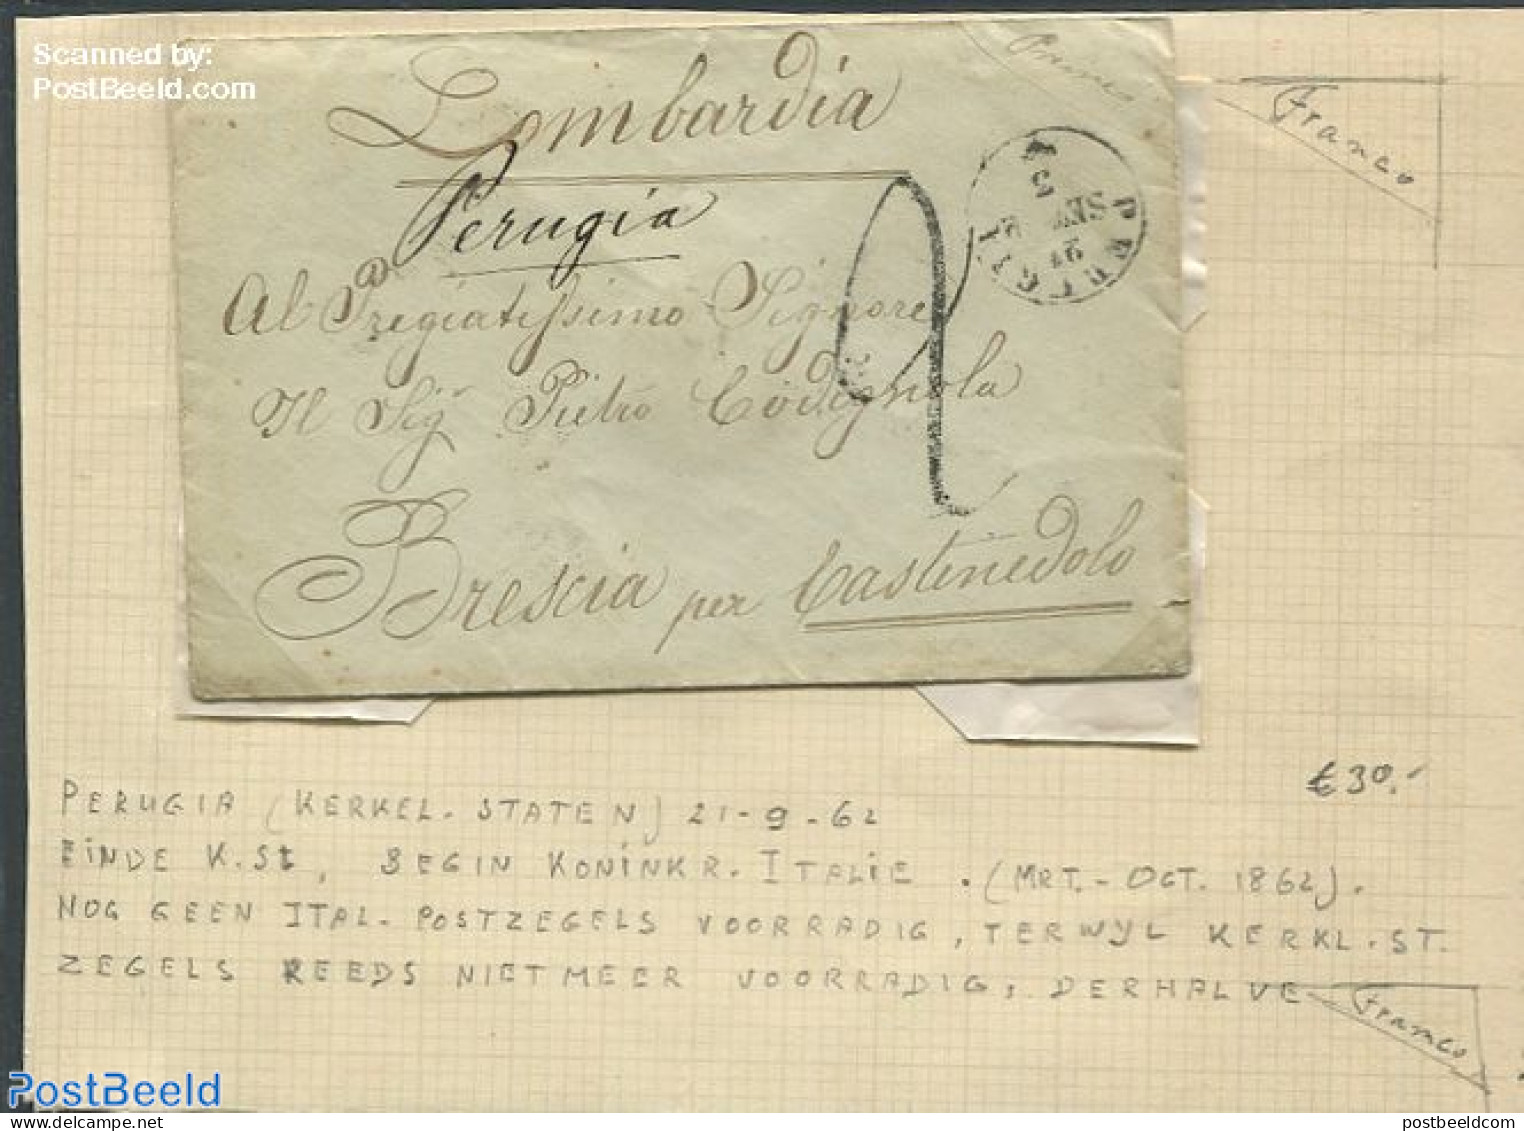 Scanned by:
PostBeeld.com
Franco
Lombardia
Perugia
Al Pregiatissimo Signore
Il Sigr Pietro Codignola
Brescia per Castenedolo
PERUGIA
SET
Franco
€30.-
PERUGIA (KERKEL. STATEN) 21-9-62
EINDE K.St, BEGIN KONINKR. ITALIE. (MRT.-OCT. 1862).
NOG GEEN ITAL. POSTZEGELS VOORRADIG, TERWYL KERKL. ST.
ZEGELS REEDS NIET MEER VOORRADIG, DERHALVE Franco
PostBeeld
postbeeldcom
postbeeldcom